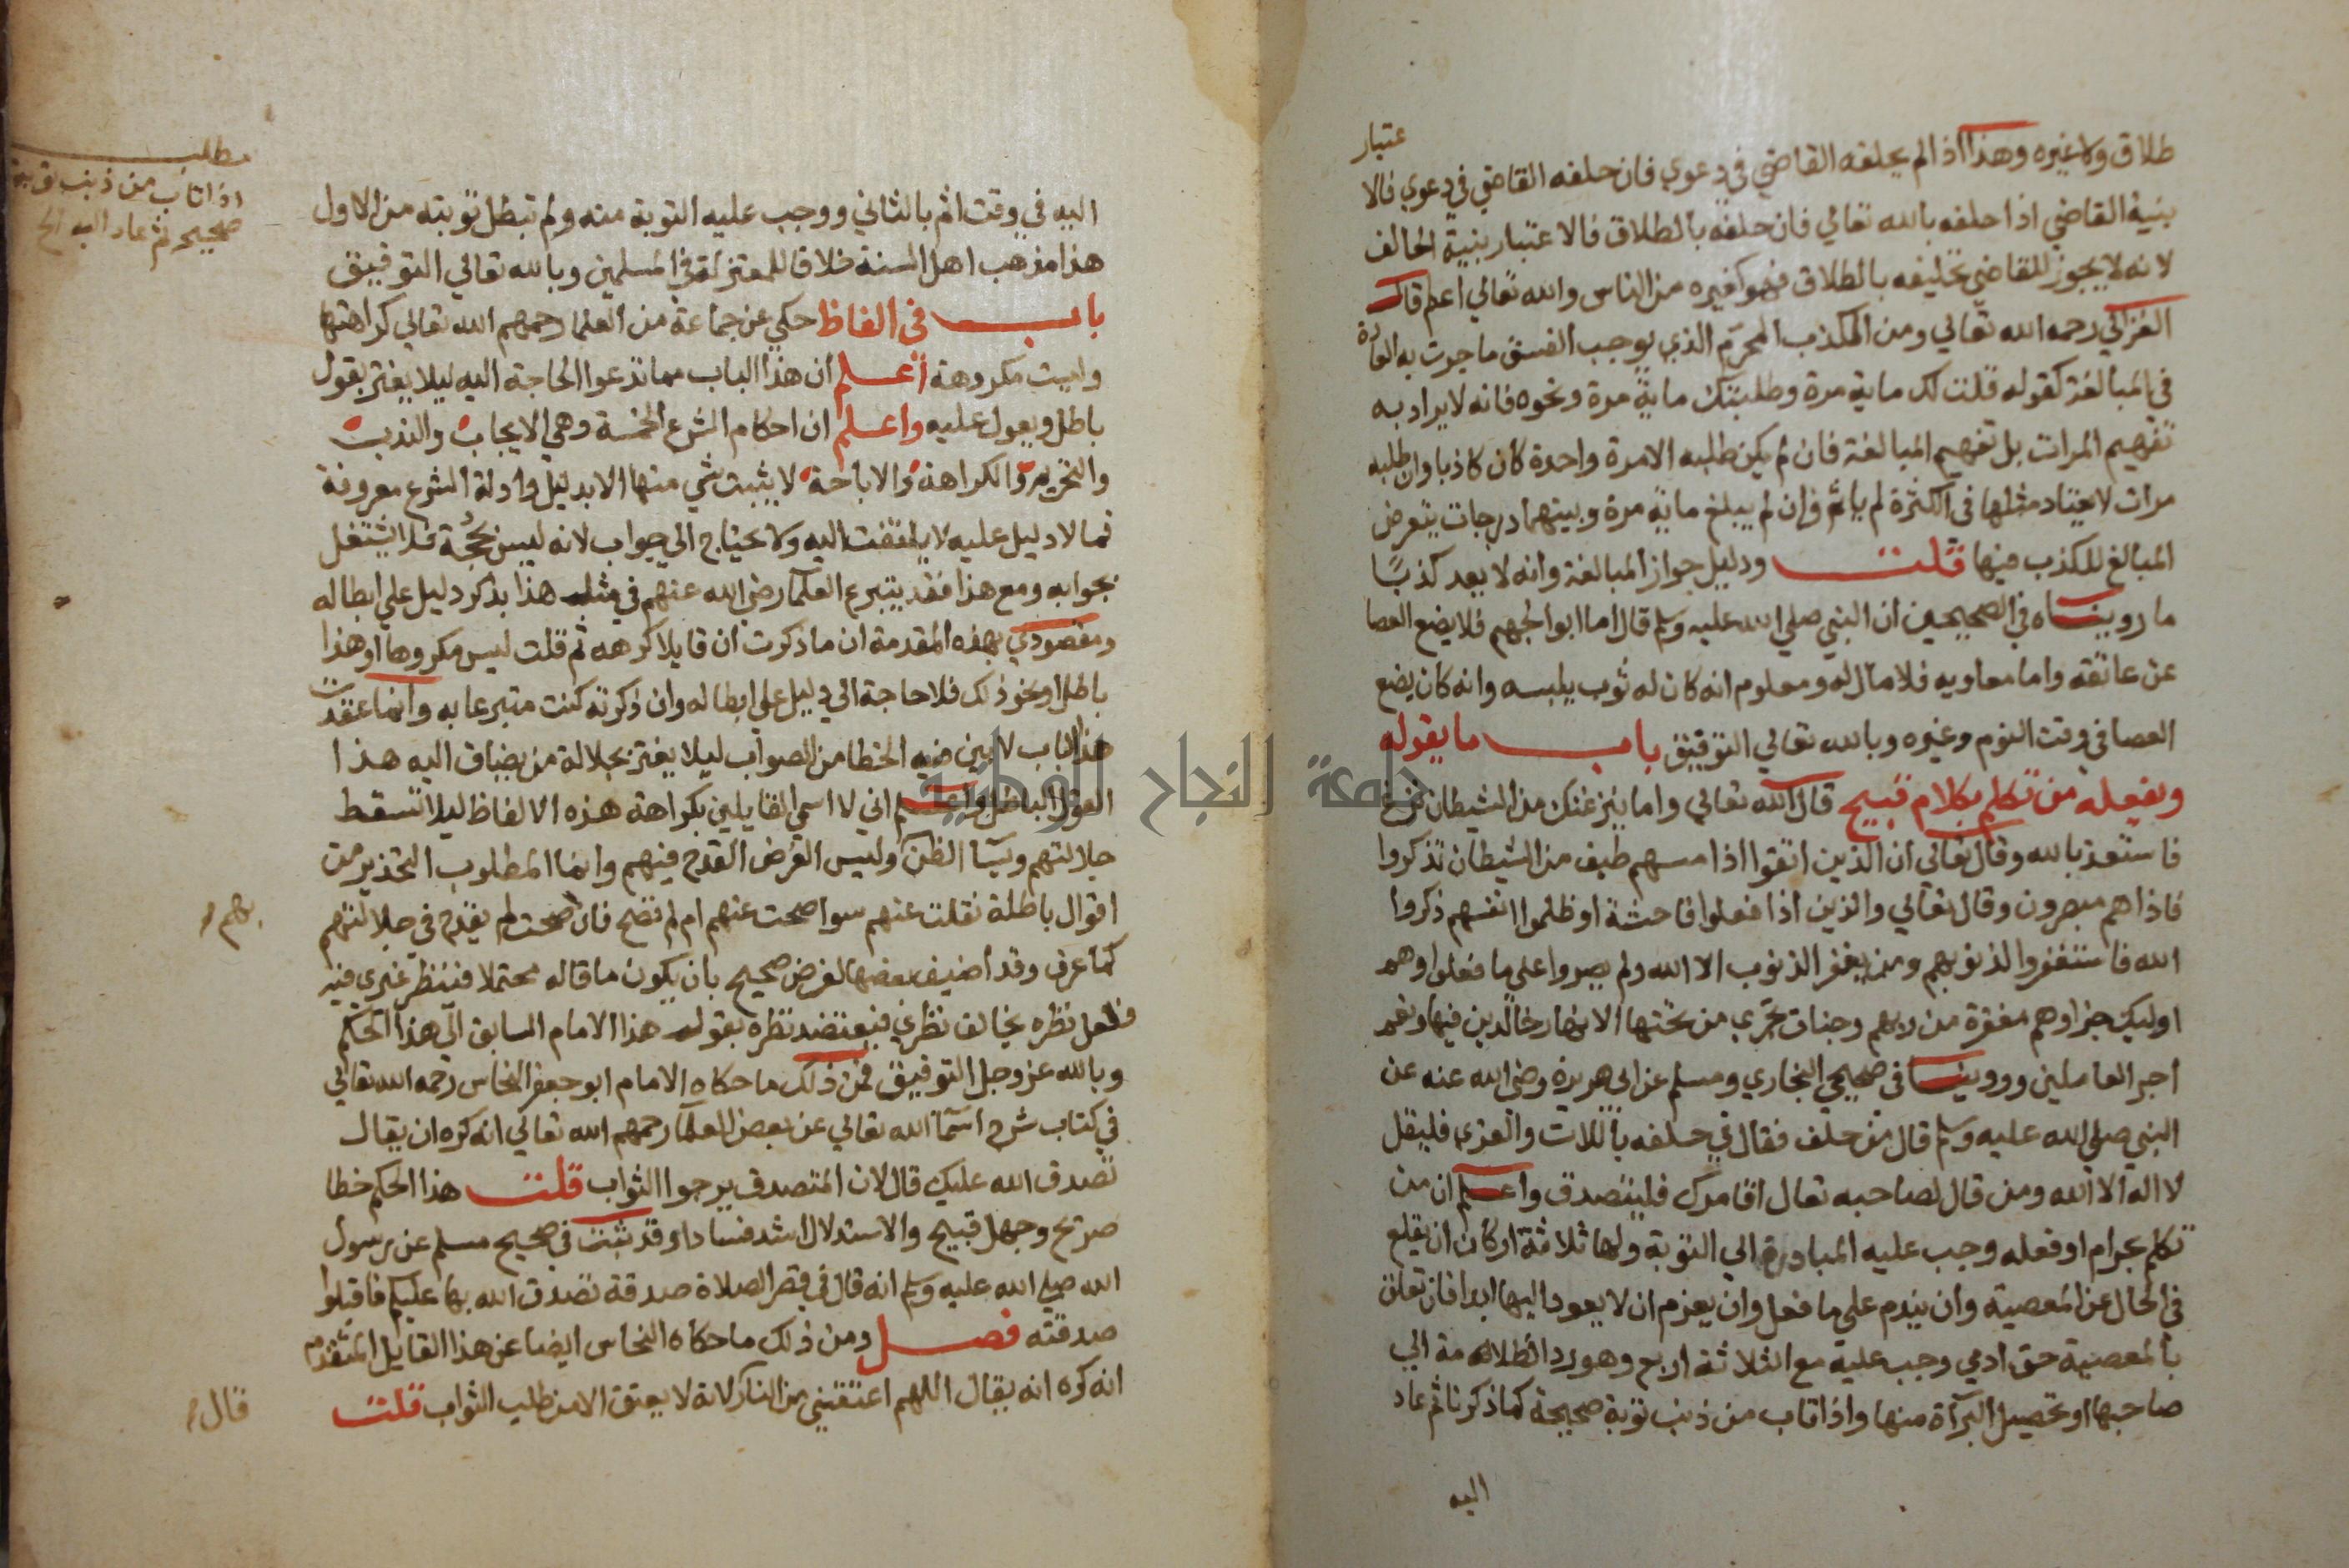 عتبار
طلاق ولا غيره وهذا اذا لم يحلفه القاضي في دعوي فان حلفه القاضي في دعوي فالا
بنية القاضي اذا حلفه بالله تعالي فان حلفه بالطلاق فالاعتبار بنية الحالف
لانه لا يجوز للقاضي تحليفه بالطلاق فهو كغيره من الناس والله تعالي اعلم قال
الغزالي رحمه الله تعالي ومن الكذب المحرم الذي يوجب الفسق ما جرت به العادة
في المبالغة كقوله قلت لك ماية مرة وطلبتك ماية مرة ونحوه فانه لا يراد به
تفهيم المرات بل تفهيم المبالغة فان لم يكن طلبه الا مرة واحدة كان كاذبا وان طلبه
مرات لا يعتاد مثلها في الكثرة لم ياثم وان لم يبلغ ماية مرة وبينهما درجات يتعرض
المبالغ للكذب فيها قلت ودليل جواز المبالغة وانه لا يعد كذبا
ما رويناه في الصحيحين ان النبي صلي الله عليه وسلم قال اما ابو الجهم فلا يضع العصا
عن عاتقه واما معاويه فلا مال له ومعلوم انه كان له ثوب يلبسه وانه كان يضع
العصا في وقت النوم وغيره وبالله تعالي التوفيق باب ما يقوله
ويفعله من تكلم بكلام قبيح قال الله تعالي واما ينزغنك من الشيطان نزغ
فاستعذ بالله وقال تعالي ان الذين اتقوا اذا مسهم طيف من الشيطان تذكروا
فاذا هم مبصرون وقال تعالي والذين اذا فعلوا فاحشة او ظلموا انفسهم ذكروا
الله فاستغفروا لذنوبهم ومن يغفر الذنوب الا الله ولم يصروا علي ما فعلوا وهم
اوليك جزاوهم مغفرة من ربهم وجنات تجري من تحتها الانهار خالدين فيها ونعم
اجر العاملين وروينا في صحيحي البخاري ومسلم عن ابي هريرة رضي الله عنه عن
النبي صلي الله عليه وسلم قال من حلف فقال في حلفه باللات والعزي فليقل
لا اله الا الله ومن قال لصاحبه تعال اقامرك فليتصدق واعلم ان من
تكلم بحرام او فعله وجب عليه المبادرة الي التوبة ولها ثلاثة اركان ان يقلع
في الحال عن المعصية وان يندم علي ما فعل وان يعزم ان لا يعود اليها ابدا فان تعلق
بالمعصية حق ادمي وجب عليه مع الثلاثة اربع وهو رد الظلامة الي
صاحبها او تحصيل البرآة منها واذا تاب من ذنب توبة صحيحة كما ذكرنا ثم عاد
اليه
مطلب
اذا تاب من ذنب توبة
صحيحة ثم عاد اليه الخ
اليه في وقت اثم بالثاني ووجب عليه التوبة منه ولم تبطل توبته من الاول
هذا مذهب اهل السنة خلافا للمعتزلة في المسلمين وبالله تعالي التوفيق
باب في الفاظ حكي عن جماعة من العلما رحمهم الله تعالي كراهتها
وليست مكروهة اعلم ان هذا الباب مما تدعوا الحاجة اليه ليلا يغتر بقول
باطل ويعول عليه واعلم ان احكام الشرع الخمسة وهي الايجاب والندب
والتحريم والكراهة والاباحة لا يثبت شي منها الا بدليل وادلة الشرع معروفة
فما لا دليل عليه لا يلتفت اليه ولا يحتاج الي جواب لانه ليس بحجة فلا يشتغل
بجوابه ومع هذا فقد يتبرع العلما رضي الله عنهم في مثله هذا بذكر دليل علي ابطاله
ومقصودي بهذه المقدمة ان ما ذكرت ان قايلا كرهه ثم قلت ليس مكروها او هذا
باطل او نحو ذلك فلا حاجة الي دليل علي ابطاله وان ذكرته كنت متبرعا به وانما عقدت
هذا الباب لابين فيه الخطا من الصواب ليلا يغتر بجلالة من يضاف اليه هذا
القول الباطل واعلم اني لا اسمي القايلين بكراهة هذه الالفاظ ليلا تسقط
جلالتهم ويسآ الظن وليس الغرض القدح فيهم وانما المطلوب التحذير من
اقوال باطلة نقلت عنهم سوا صحت عنهم ام لم تصح فان صحت لم يقدح في جلالتهم
بهم
كما عرف وقد اضيف بعضها لغرض صحيح بان يكون ما قاله محتملا فينظر غيري فيه
فلعل نظره يخالف نظري فيعتضد نظره بقوله هذا الامام السابق الي هذا الحكم
وبالله عز وجل التوفيق فمن ذلك ما حكاه الامام ابو جعفر النحاس رحمه الله تعالي
في كتاب شرح اسمآ الله تعالي عن بعض العلمآ رحمهم الله تعالي انه كره ان يقال
تصدق الله عليك قال لان المتصدق يرجوا الثواب قلت هذا الحكم خطا
صريح وجهل قبيح والاستدلال اشد فسادا وقد ثبت في صحيح مسلم عن رسول
الله صلي الله عليه وسلم انه قال في قصر الصلاة صدقة تصدق الله بها عليكم فاقبلوا
صدقته فصل ومن ذلك ما حكاه النحاس ايضا عن هذا القايل المتقدم
انه كره انه يقال اللهم اعتقني من النار لانه لا يعتق الا من طلب الثواب قلت
قال
جامعة النجاح الوطنية